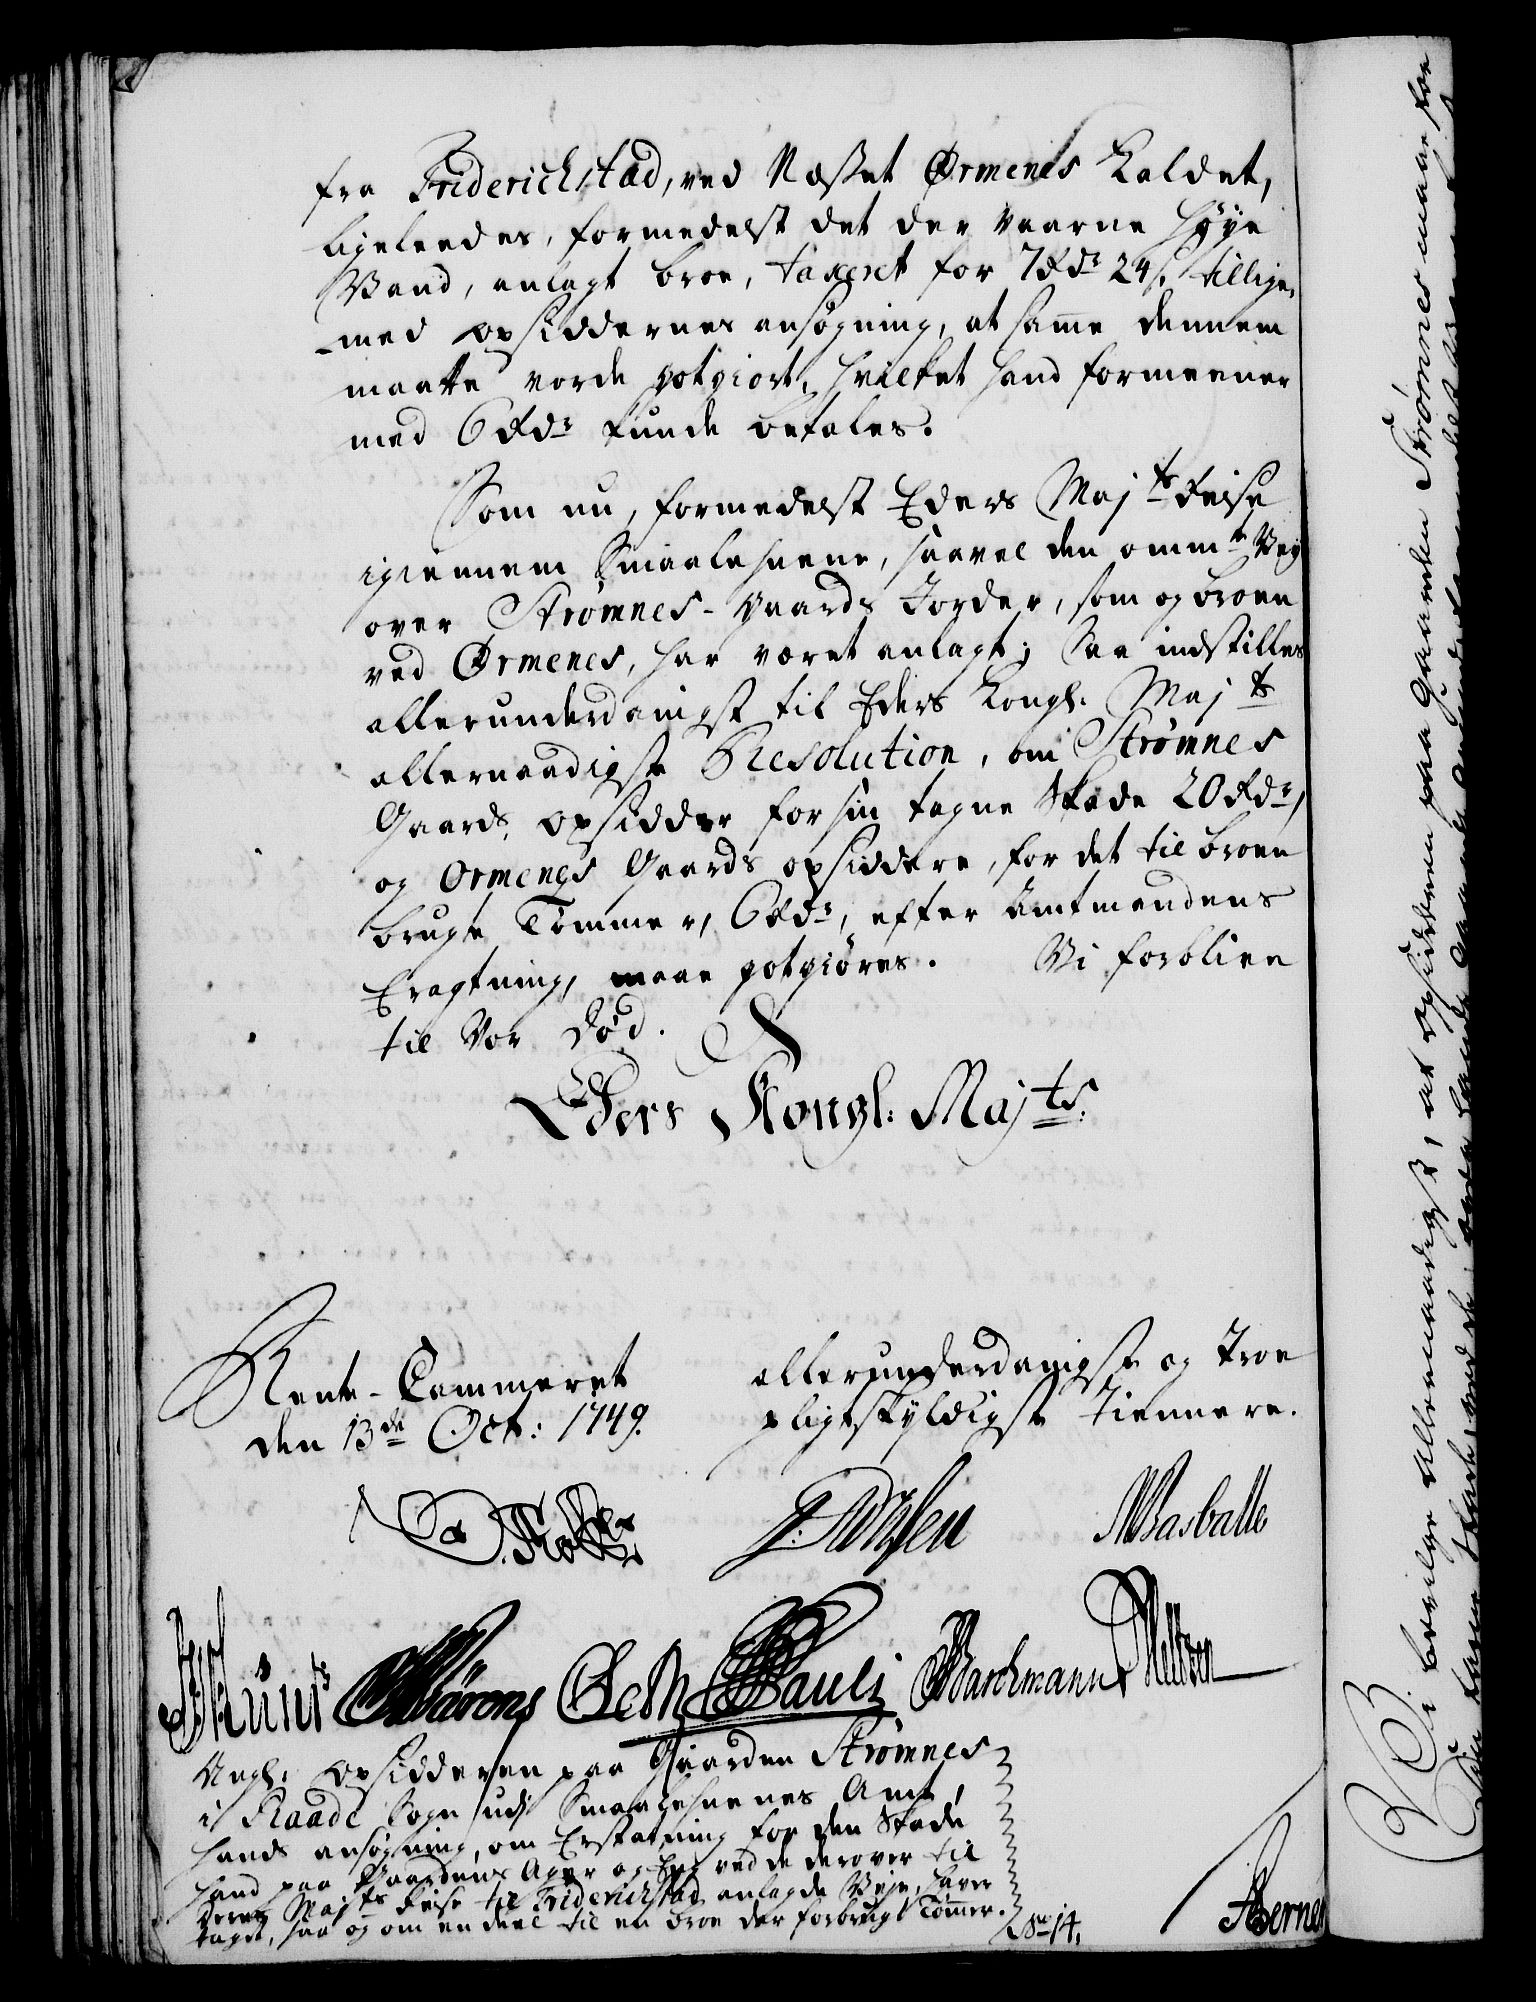 fra Friderichstad, ved Næsset Ørmenes kaldet,
ligeleedes, formedelst det der værne høye
Vand, anlagt broe, taxeret for 7 Rdr 24 s. tillige-
med opsiddernes ansøgning, at same dennem
maatte vorde gotgiort, hvilket hand formeener
med 6 Rdr kunde betales.
Som nu, formedelst Eders Majts Reise
igiennem Smaalehnene, saavel den ommte Vey
over Strømnes-Gaards Jorder, som og broen
ved Ørmenes, har været anlagt; Saa indstilles
allerunderdanigst til Eders Kongl. Majts
allernaadigste Resolution, om Strømnes
Gaards opsidder for sin tagne Skade 20 Rdr,
og Ormenes Gaards opsiddere, for det til broen
brugte Tømmer, 6 Rdr, efter Amtmandens
Eragtning, maae gotgiøres. Vi forblive
til Vor Død.
Eders Kongl: Majts.
Rente-Cammeret
den 13de Oct: 1749.
allerunderdanigst og Troe
pligtskyldigste Tiennere.
Basballe
Pauli Barchmann
Angl. Opsidderen paa Gaarden Strømnes
i Raade Sogn udj Smaalehnenes Amt,
hands ansøgning, om Erstatning for den Skade
hand paa Gaardens Ager og Eng ved de derover til
Deres Majts Reise til Friderichstad anlagde Veje, haver
taget, saa og om en deel til en broe der forbrugt Tømer.
No 14.
Vi bevilge Allernaadigst, at Opsidderen paa Gaarden Strømnes maae for